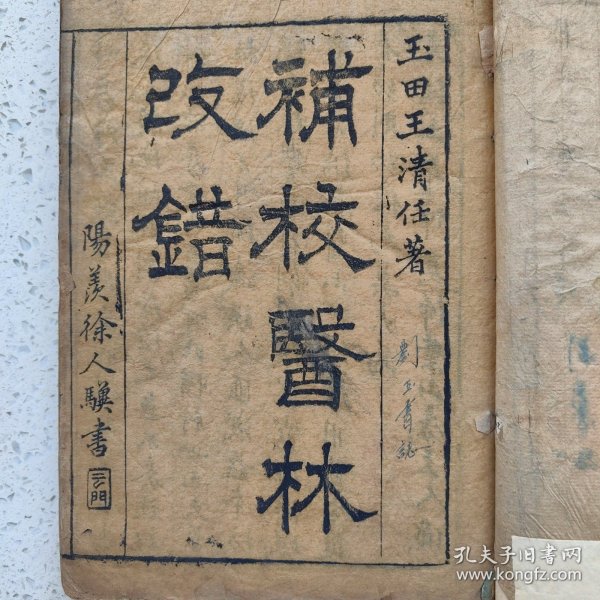 玉田王清任著
補校醫林
改錯
陽羨徐人驥書
孔夫子旧书网
www.kongfz.com